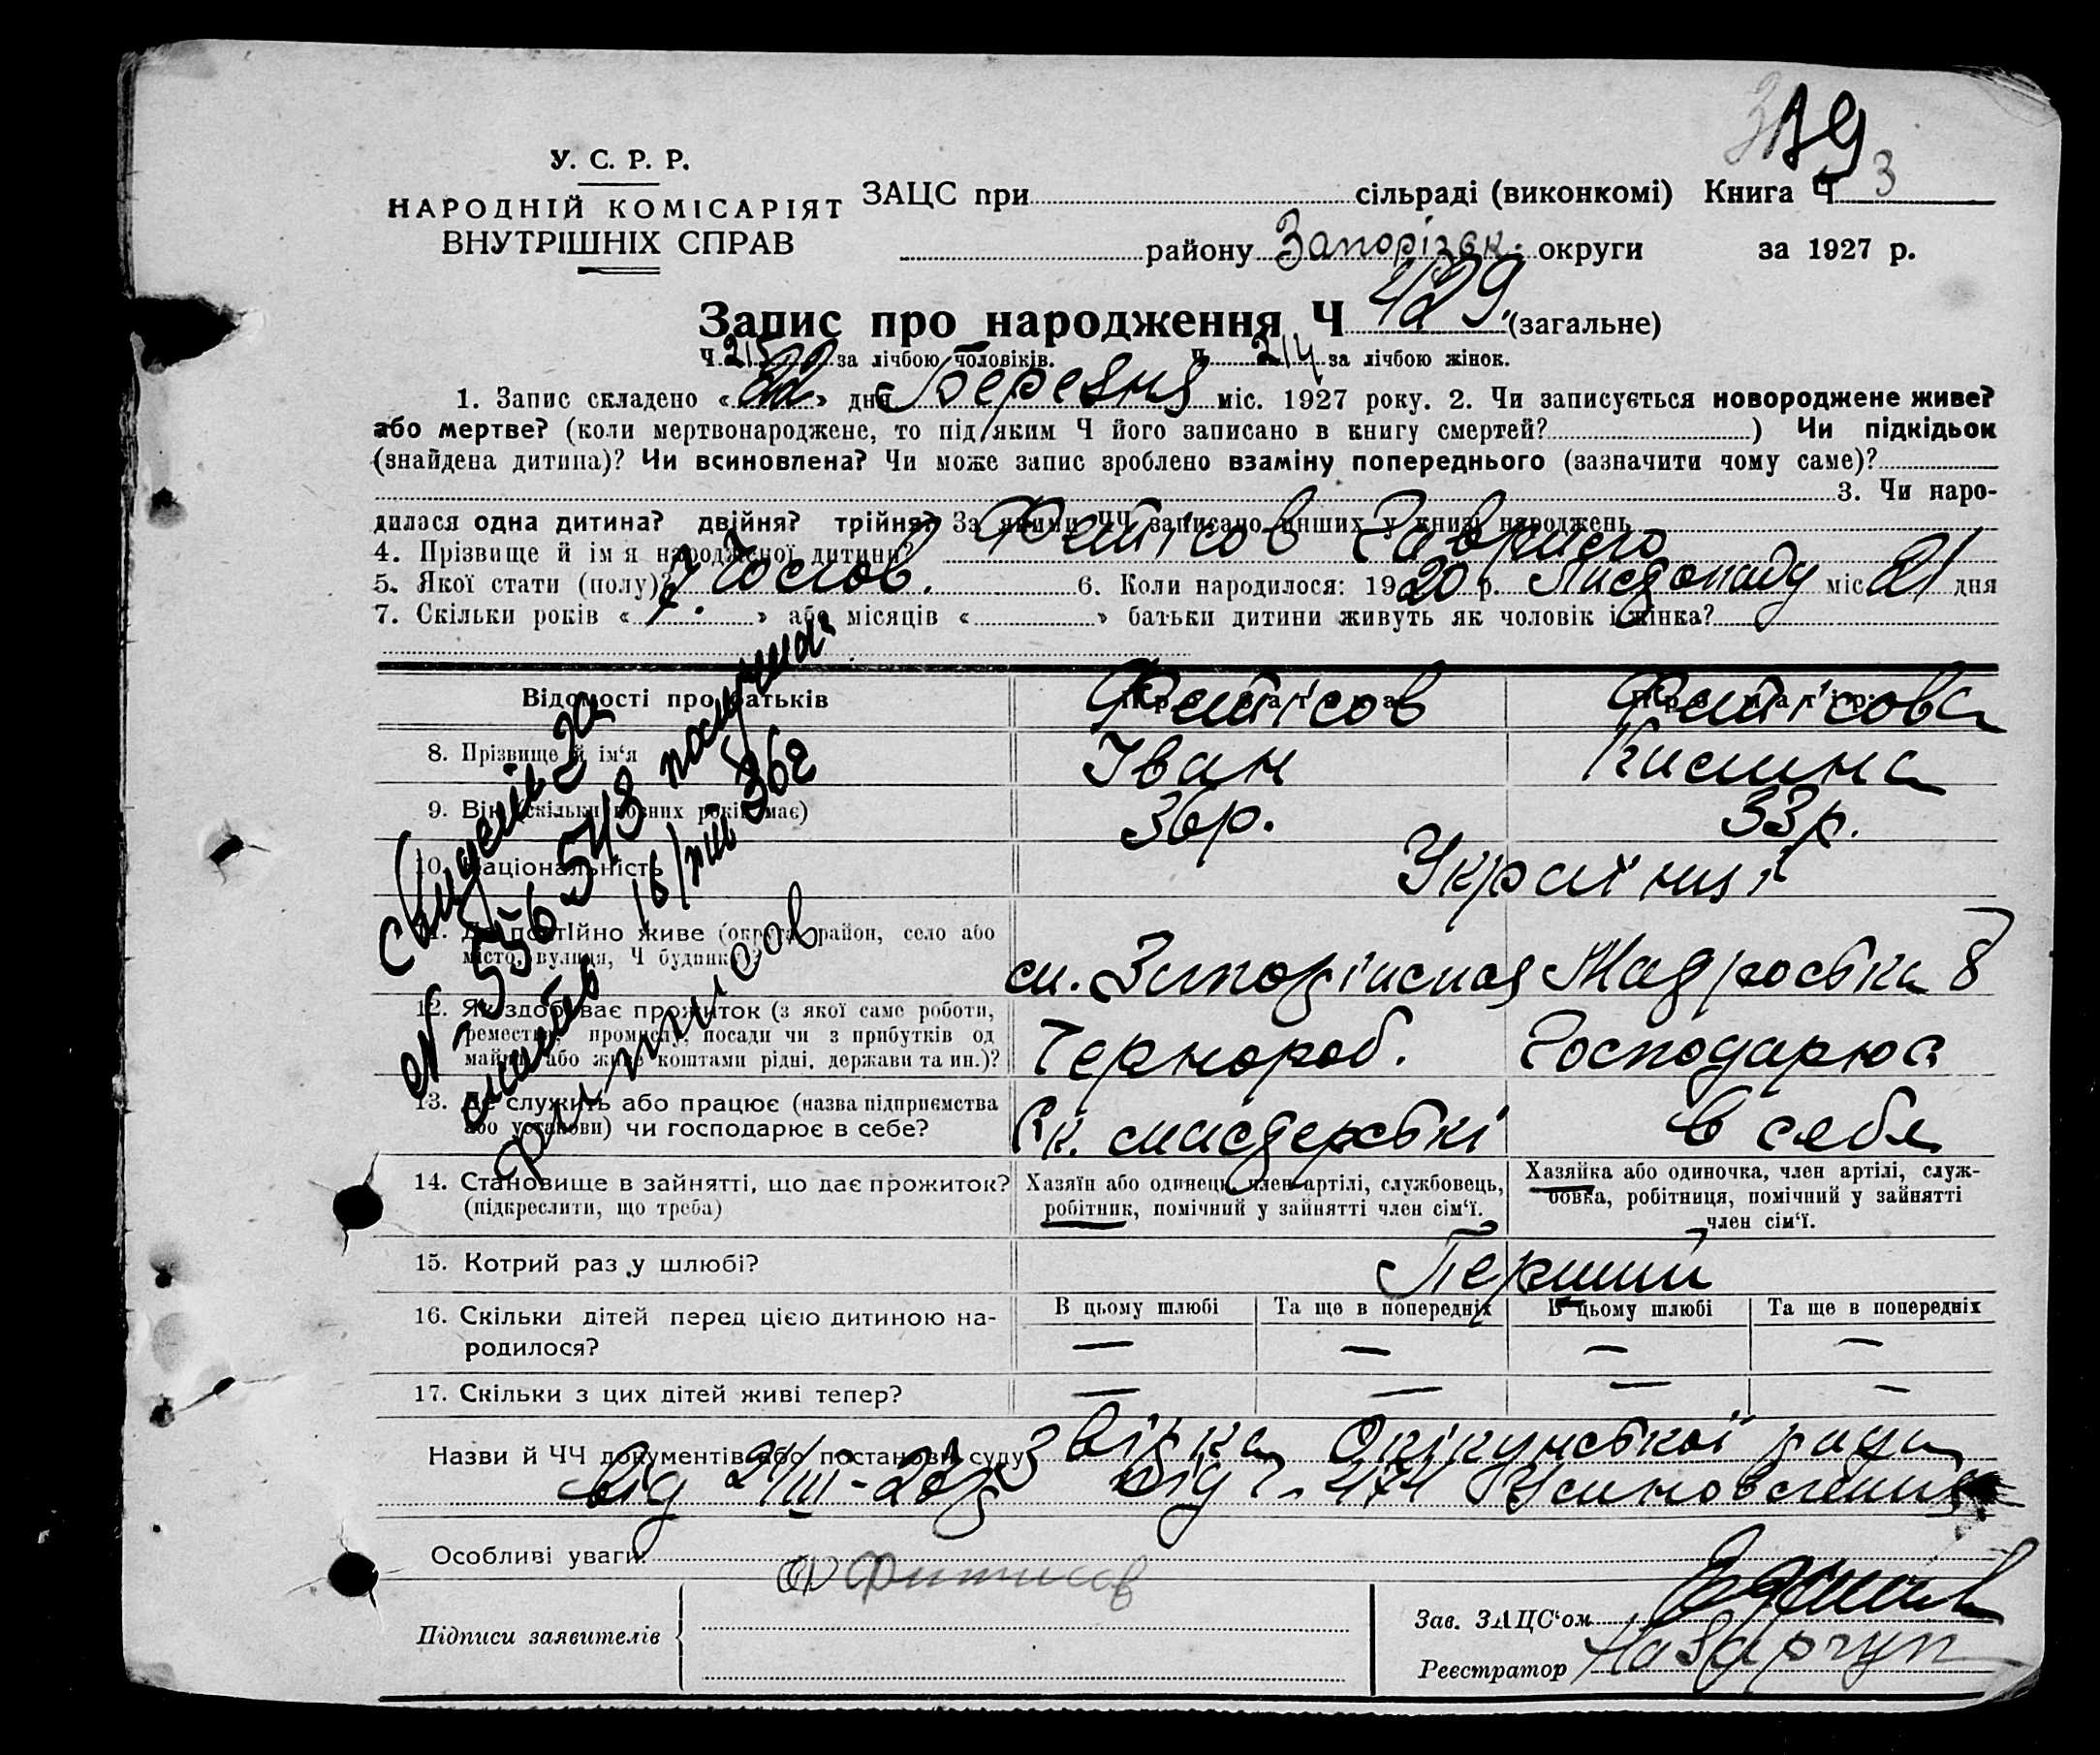 319
У. С. Р. Р.
НАРОДНІЙ КОМІСАРІЯТ
ВНУТРІШНІХ СПРАВ
ЗАЦС при сільраді (виконкомі) Книга Ч 3
району Запорізьк. округи за 1927 р.
Запис про народження Ч 429. (загальне)
Ч. 215 за лічбою чоловіків. Ч. 214 за лічбою жінок.
1. Запис складено «22» дня Березня міс. 1927 року. 2. Чи записується новороджене живе?
або мертве? (коли мертвонароджене, то під яким Ч його записано в книгу смертей? ) Чи підкідьок
(знайдена дитина)? Чи всиновлена? Чи може запис зроблено взаміну попереднього (зазначити чому саме)?
3. Чи наро-
дилася одна дитина? двійня? трійня? За якими ЧЧ записано инших у книзі народжень
4. Прізвище й ім'я народженої дитини? Фетісов Гаврило
5. Якої стати (полу)? Чолов. 6. Коли народилося: 1920 р. Листопаду міс 21 дня
7. Скільки років «7.» або місяців « » батьки дитини живуть як чоловік і жінка?
Відомості про батьків
Фетісов Фетісова
8. Прізвище й ім'я Іван Килина
9. Вік (скільки повних років має) 36р. 33р.
10. Національність Українці
11. Де постійно живе (округа, район, село або
місто, вулиця, Ч будинку)?
12. Як здобуває прожиток (з якої саме роботи,
ремества, промислу, посади чи з прибутків од
майна або живе коштами рідні, держави та ин.)?
Чернороб. Господарює
13. Де служить або працює (назва підприємства
або установи) чи господарює в себе?
в себе
14. Становище в зайнятті, що дає прожиток?
(підкреслити, що треба)
Хазяїн або одинець, член артілі, службовець,
робітник, помічний у зайнятті член сім'ї.
Хазяйка або одиночка, член артілі, служ-
бовка, робітниця, помічний у зайнятті
член сім'ї.
15. Котрий раз у шлюбі? Перший
16. Скільки дітей перед цією дитиною на-
родилося?
В цьому шлюбі Та ще в попередніх В цьому шлюбі Та ще в попередніх
— — — —
17. Скільки з цих дітей живі тепер? — — — —
Назви й ЧЧ документів або постанови суду Звідка Опікунської ради
від Ч. 474 Всиновлення
Особливі уваги:
Фитисов
Підписи заявителів
Зав. ЗАЦС'ом
Реєстратор Назарчук
№ 556543
16/VIII 36г
Фитисов